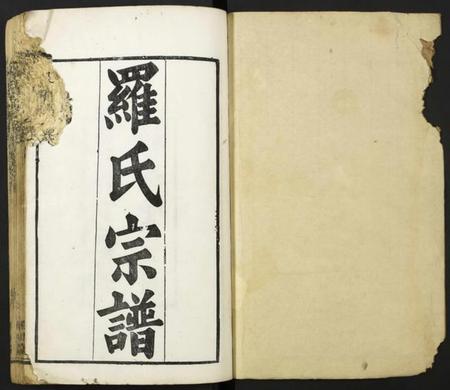 羅氏宗譜